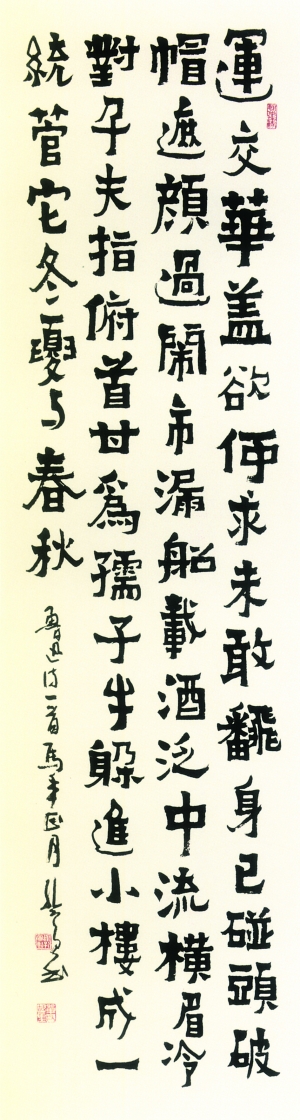 運交華盖欲何求未敢飜身已碰頭破
帽遮顔過鬧市漏船載酒泛中流橫眉冷
對千夫指俯首甘爲孺子牛躲進小樓成一
統菅它冬夏与春秋
魯迅诗一首馬年正月